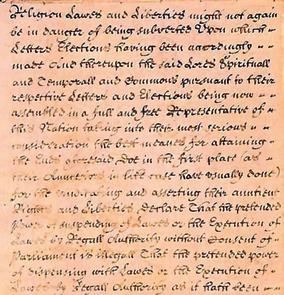 Religion Lawes and Liberties might not again
be in danger of being subverted Upon which
Letters Elections haveing been accordingly
made And thereupon the said Lords Spirituall
and Temporall and Commons pursuant to their
respective Letters and Elections being now
assembled in a full and free Representative of
this Nation takeing into their most serious
consideration the best meanes for attaining
the Ends aforesaid Doe in the first place (as
their Auncestors in like case have usually done)
for the vindicating and asserting their auntient
Rights and Liberties Declare That the pretended
Power of suspending of Lawes or the Execution of
Lawes by Regall Authority without Consent of
Parliament is illegall That the pretended power
of Dispensing with Lawes or the Execution of
Lawes by Regall Authority as it hath been